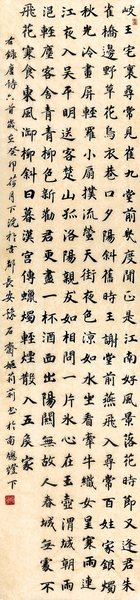 岐王宅裏尋常見崔九堂前幾度聞正是江南好風景落花時節又逢君朱
雀橋邊野草花烏衣巷口夕陽斜舊時王謝堂前燕飛入尋常百姓家銀燭
秋光冷畫屏輕羅小扇撲流螢天街夜色涼如水坐看牽牛織女星寒雨連
江夜入吳平明送客楚山孤洛陽親友如相問一片冰心在玉壺渭城朝雨
浥輕塵客舍青青柳色新勸君更盡一杯酒西出陽關無故人春城無處不
飛花寒食東風御柳斜日暮漢宮傳蠟燭輕煙散入五侯家
右錄唐詩六首歲在癸卯荷月下浣於古都長安石齋莉莉書於南窗燈下